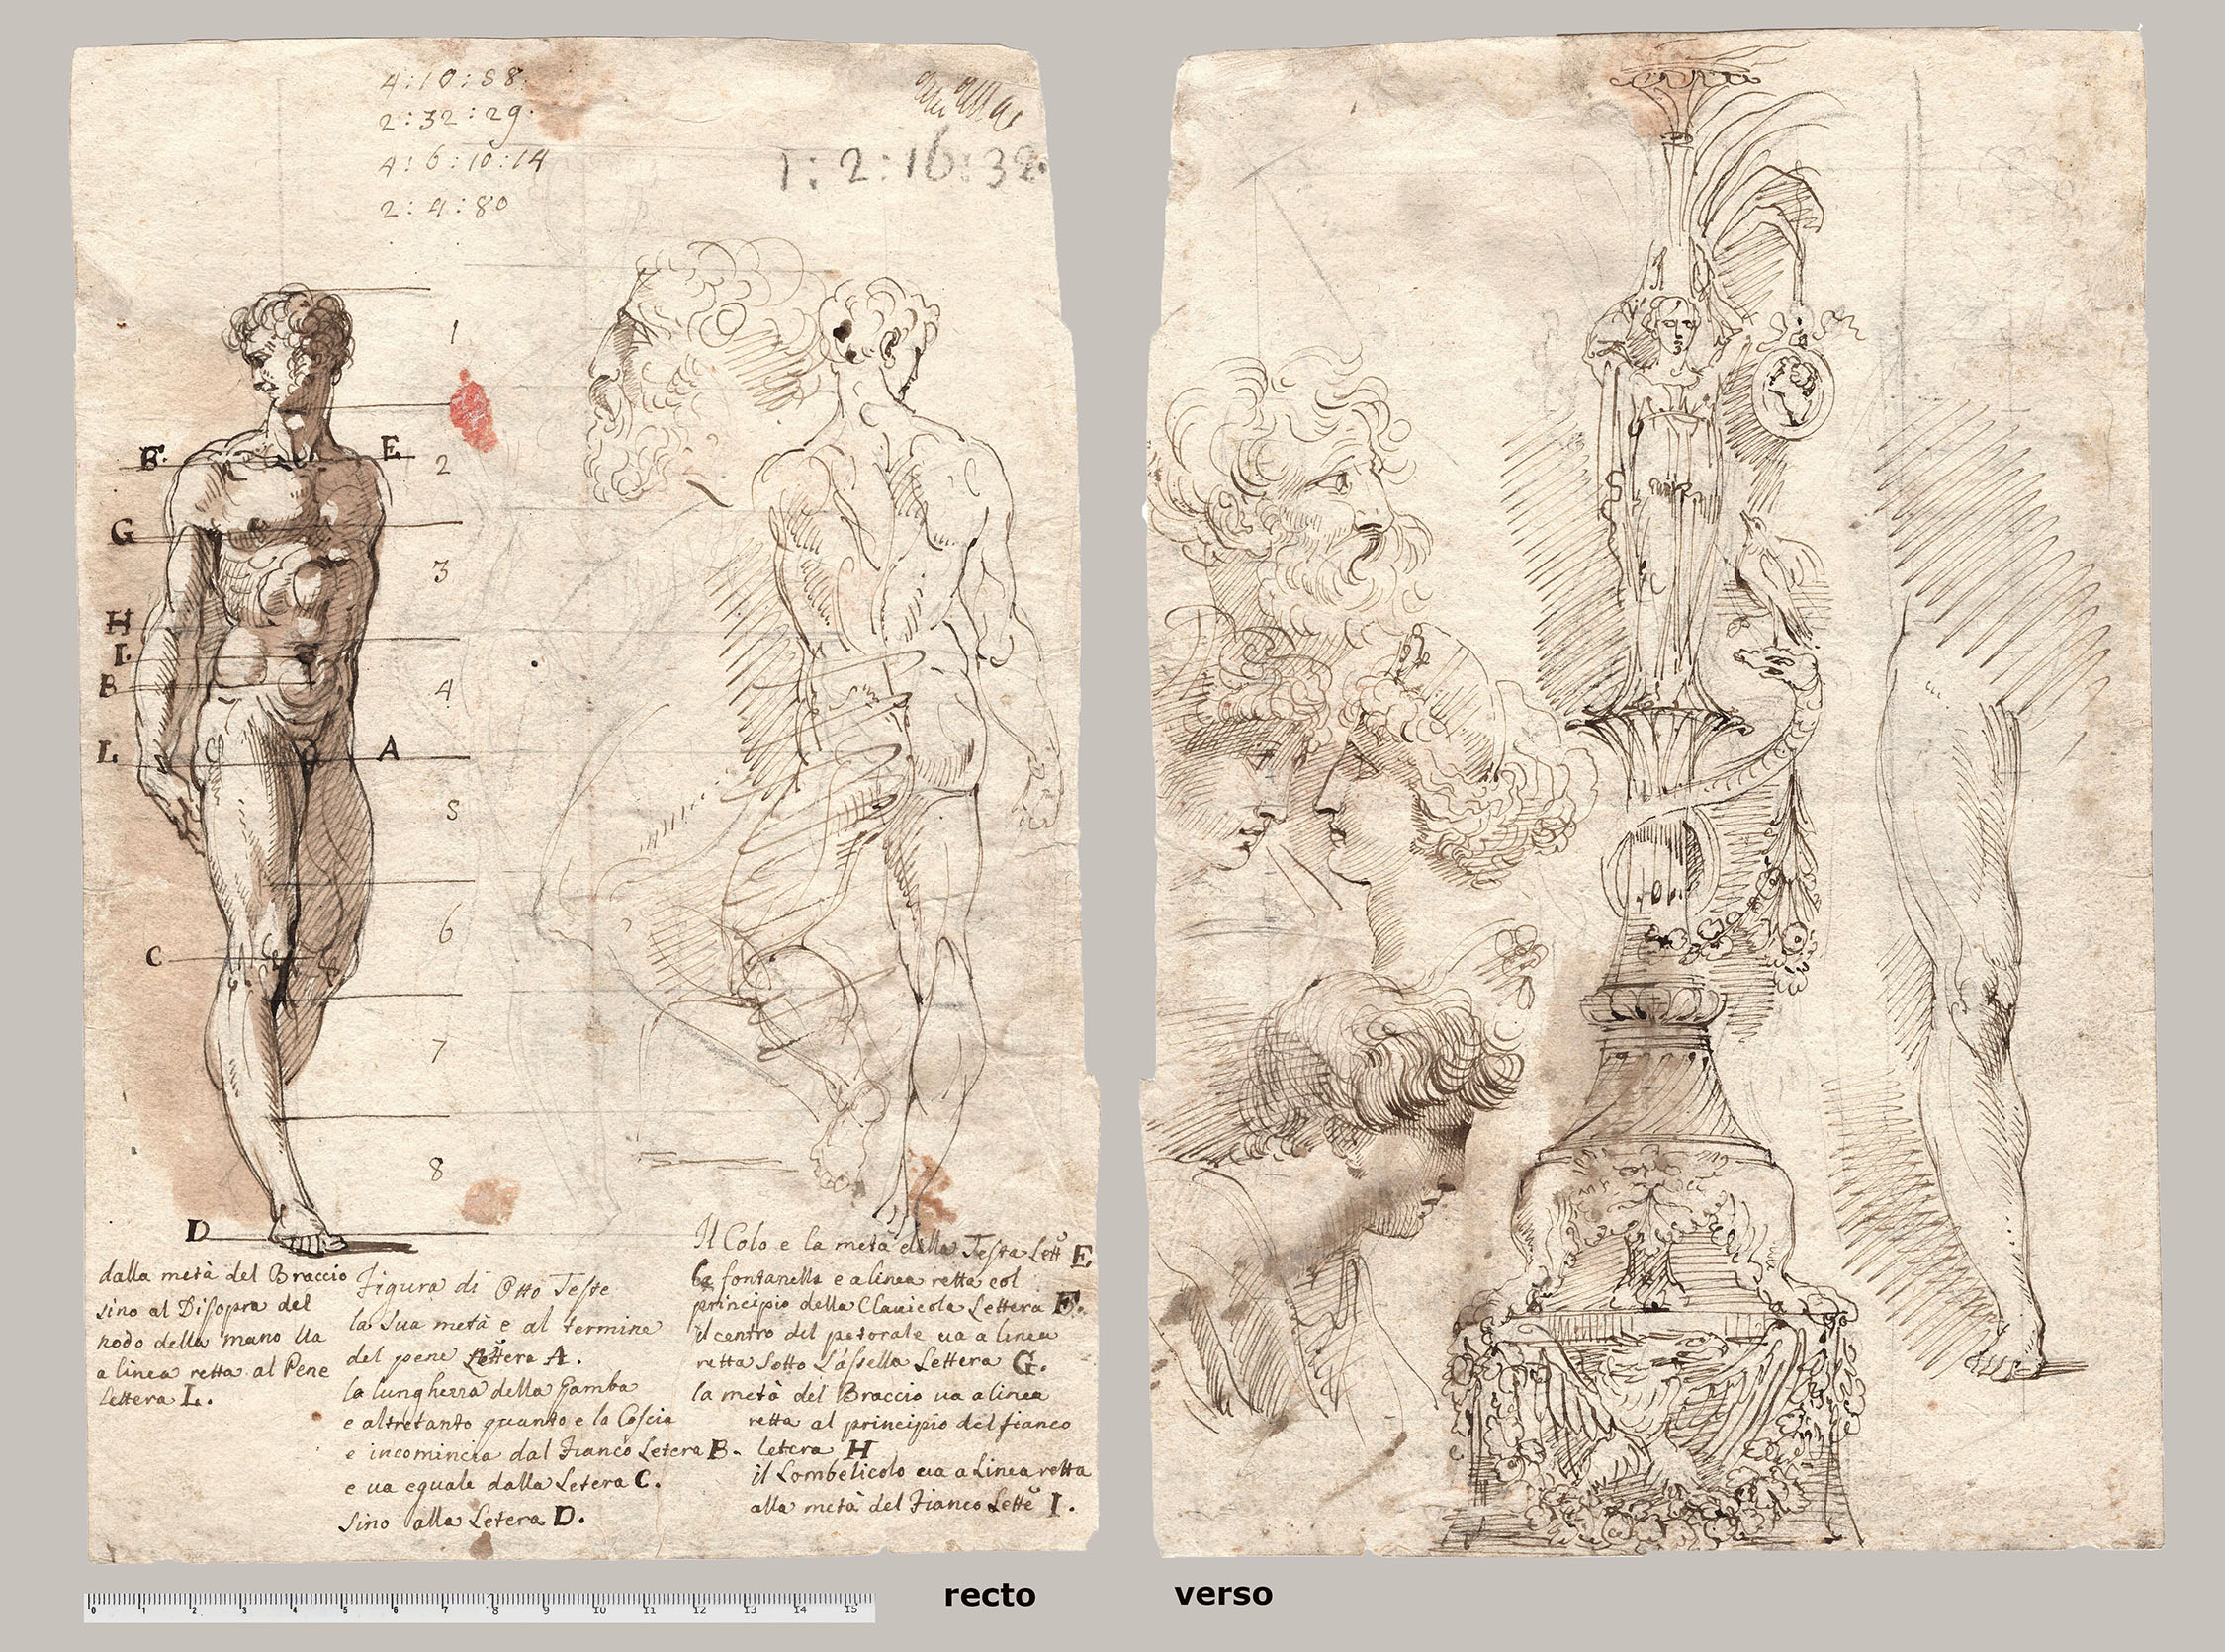 4:10:58.
2:32:29.
4:6:10:14
2:4:80
1:2:16:32.
1
F.
E
2
G
3
H
I.
B
4
L
A
5
6
C
7
8
D
dalla metà del Braccio
sino al Disopra del
nodo della mano Ua
a linea retta al Pene
lettera L.
Figura di Otto Teste
la Sua metà e al termine
del pene Lettera A.
la lungherra della Gamba
e altretanto quanto e la Coscia
e incomincia dal Fianco Letera B.
e ua eguale dalla Letera C.
sino alla Letera D.
Il Colo e la metà della Testa Lettᵃ E
la fontanella e a linea retta col
principio della Clauicola Lettera F.
il centro del petorale ua a linea
retta Sotto L'assella Lettera G.
la metà del Braccio ua a linea
retta al principio del fianco
letera H
il Lombelicolo ua a Linea retta
alla metà del Fianco Lettᵃ I.
0 1 2 3 4 5 6 7 8 9 10 11 12 13 14 15
recto
verso